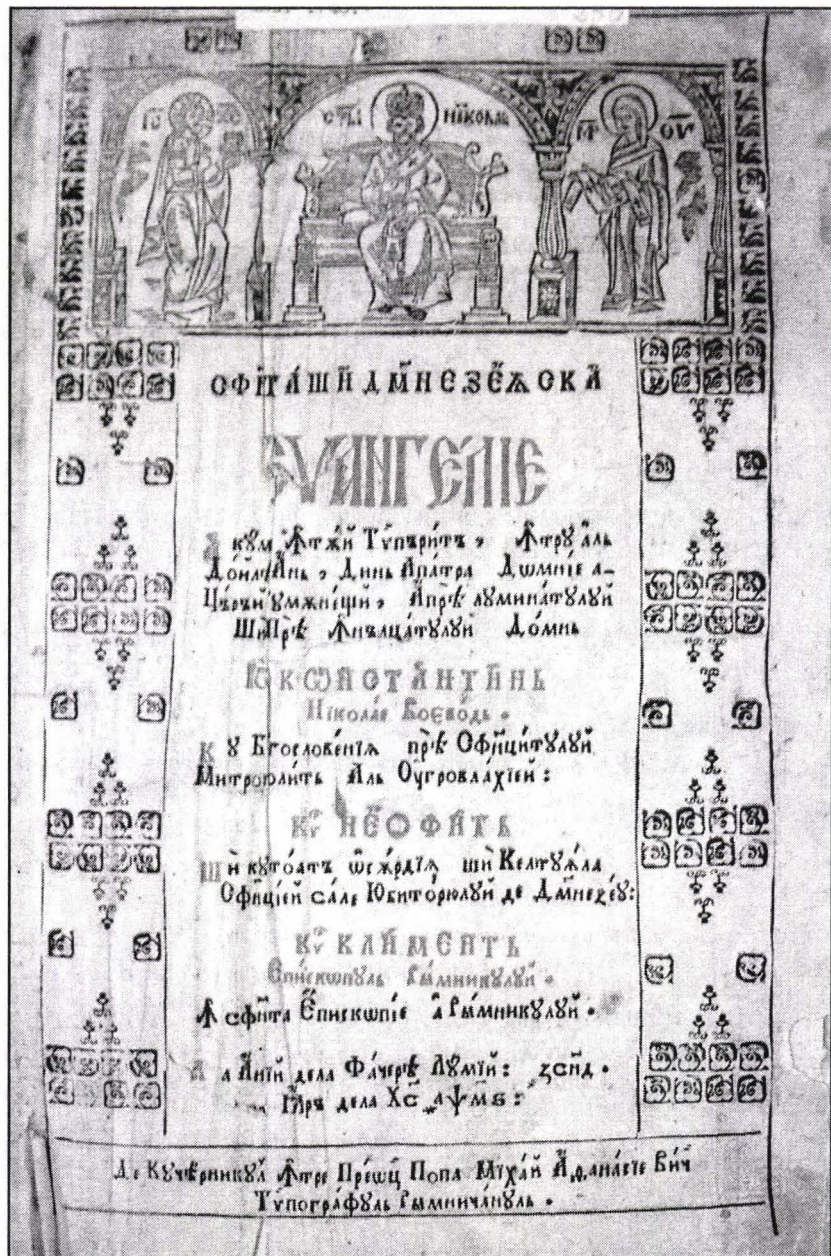 І҃С Х҃С
СТЫ НІКОЛАЕ
М҃Р Ѳ҃У
СФН҃ТА ШИ Д҃МНЕЗЕꙖСКА
ЕѴАНГЕЛІЕ
Акум Ꙟтѫй Тѵпъритъ, Ꙟтруаль
Дойлѣ Ань, Динь Апатра Дѡмніе а-
Църъй Румѫнещй, Апрѣ луминатулуй
Ши Прѣ Ꙟнълцатулуй Домнь
ІѠ КѠНСТАНТИНЬ
Ніколае Воєводь.
Кꙋ Бг҃ословеніѧ прѣ Сфинцитулуй
Митрополить Аль Оуг̾ровлахїей:
Кѵ҃р НЕОФИТЬ
Ши кутоатъ ѡсѫрдїѧ ши Келтуѧла
Сфинцїей сале Юбиторюлуй де Дмнезеу:
Кѵ҃р КЛИМЕНТЬ
Епископꙋль Рымникꙋлꙋй.
Ꙟ сфн҃та Епископїе а Рымникꙋлꙋй.
Ла Аний дела Фачерѣ Лумїй: ҂зс҃нд.
Іар дела Хс҃ ҂аѱ҃мѕ:
Де Кучѣрникꙋл Ꙟтре Преѡц Попа Міхай Аѳанасіе Вич
Тѵпографꙋль Рымничѣнꙋль.